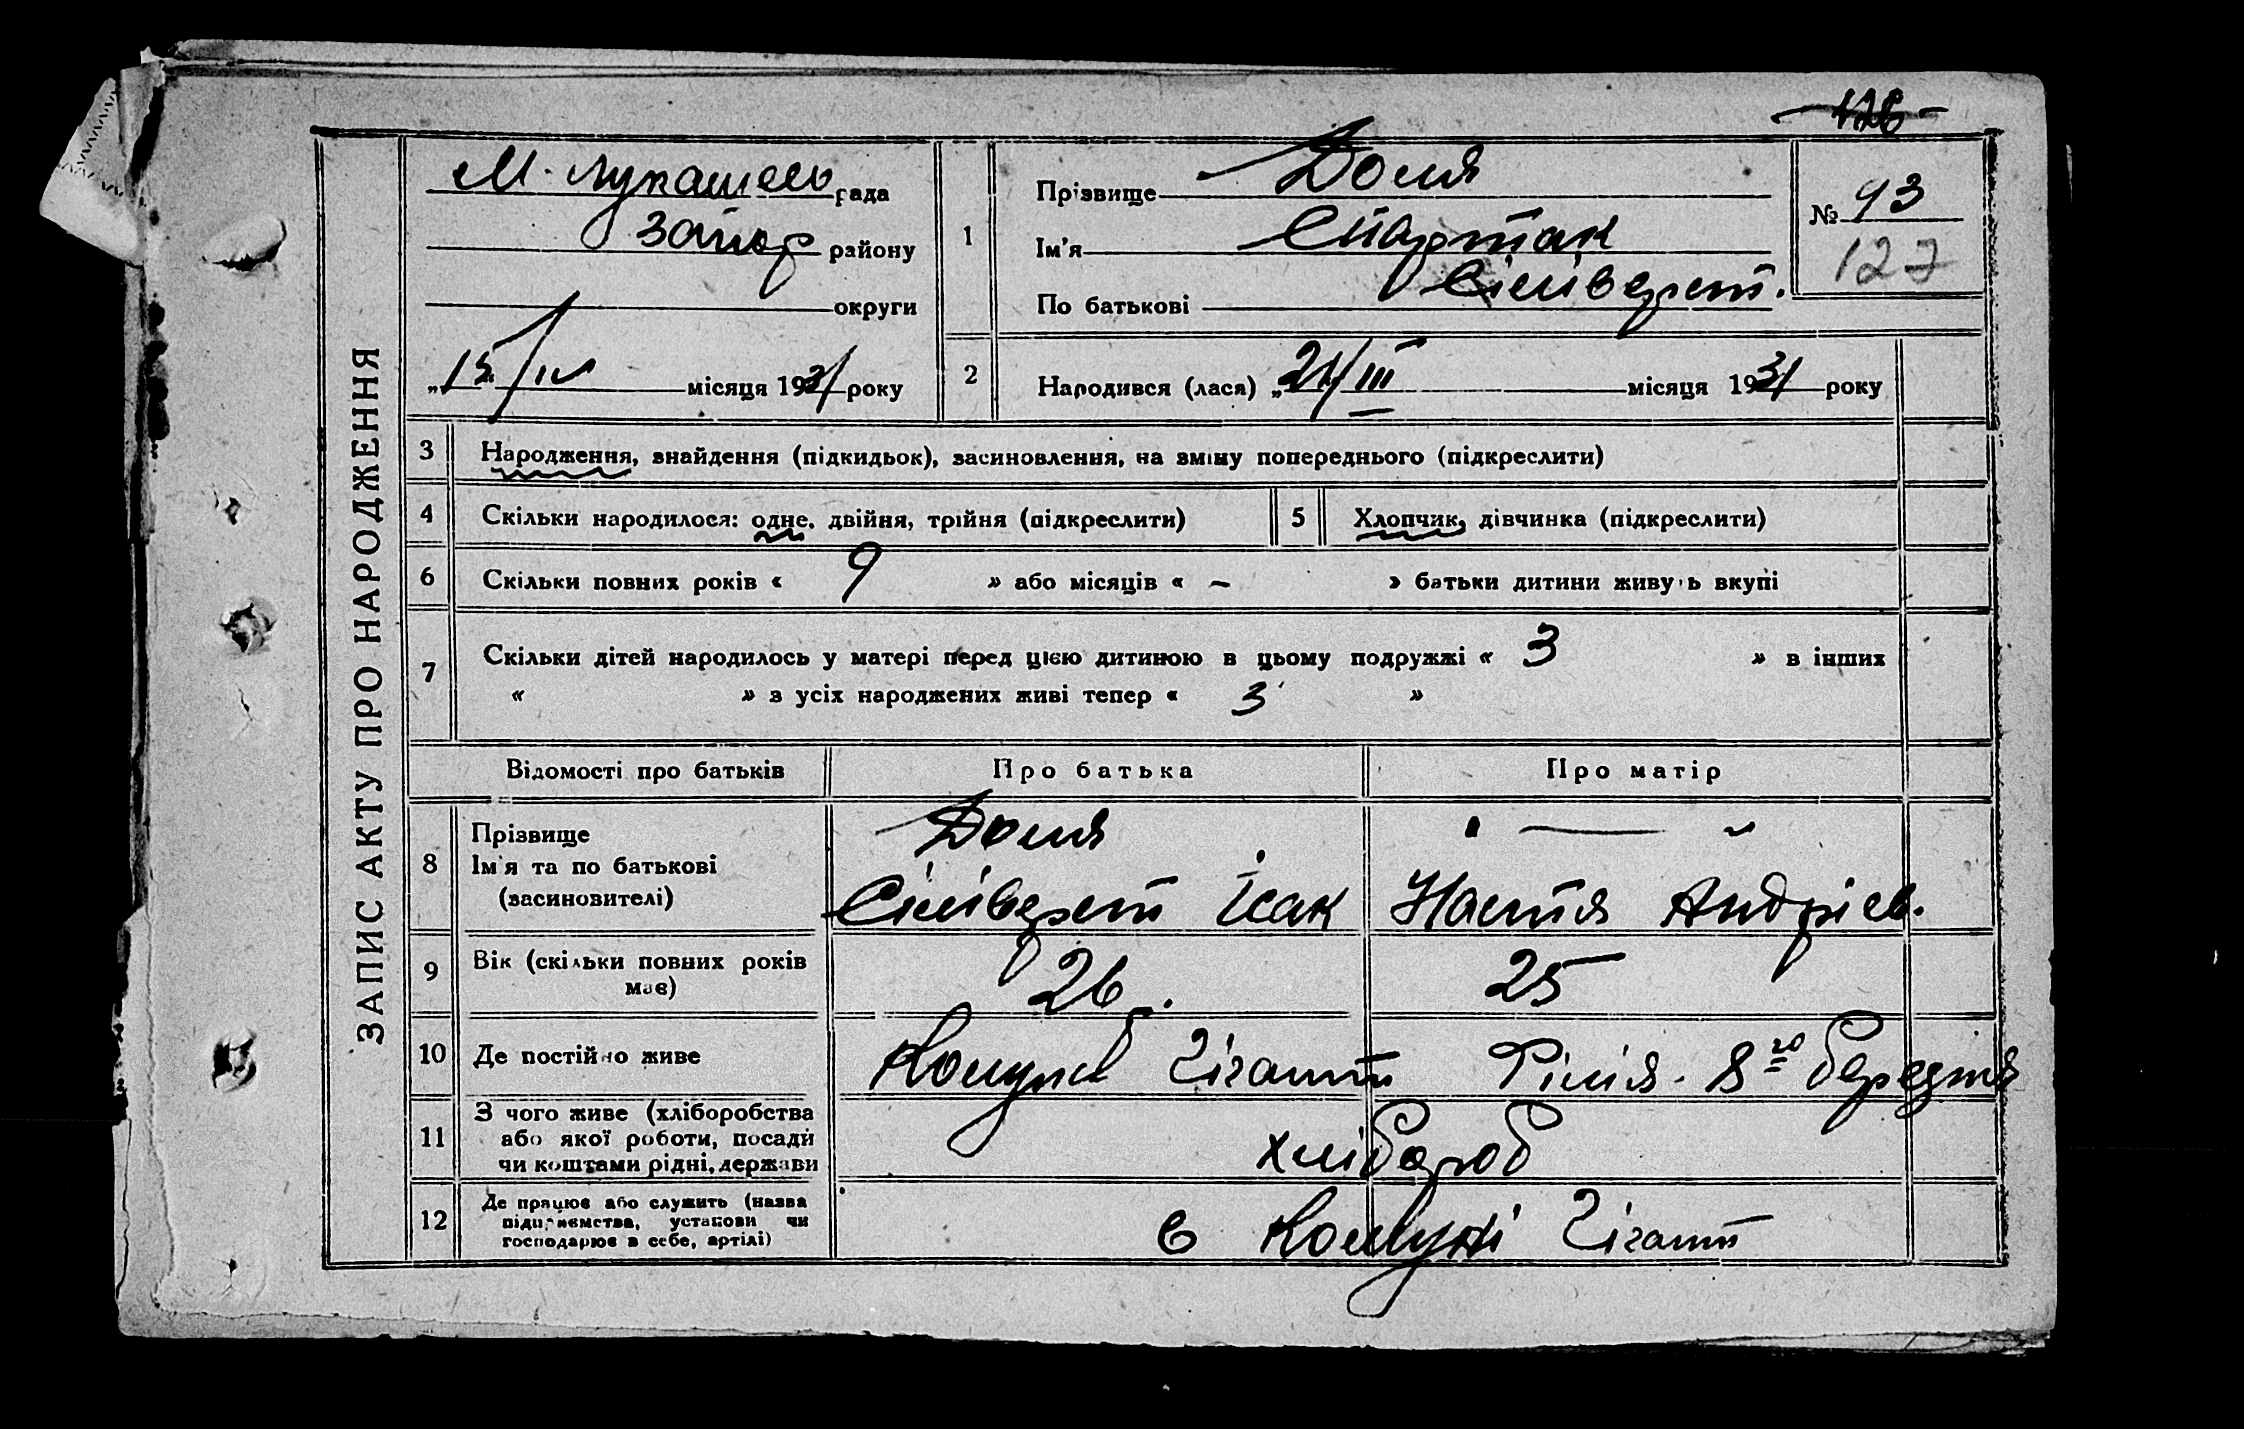 126
ЗАПИС АКТУ ПРО НАРОДЖЕННЯ
М. Лукашев рада
Запор району
округи
„15“/IV місяця 1931 року
1
Прізвище Доля
Ім'я Спартак
По батькові Сіліверст.
№ 93
127
2
Народився (лася) „21/III місяця 1931 року
3 Народження, знайдення (підкидьок), засиновлення, на зміну попереднього (підкреслити)
4 Скільки народилося: одне, двійня, трійня (підкреслити)
5 Хлопчик, дівчинка (підкреслити)
6 Скільки повних років « 9 » або місяців « – » батьки дитини живуть вкупі
7 Скільки дітей народилось у матері перед цією дитиною в цьому подружжі « 3 » в інших
« » з усіх народжених живі тепер « 3 »
Відомості про батьків Про батька Про матір
8 Прізвище
Ім'я та по батькові
(засиновителі)
Доля " — "
Сіліверст Ісак Настя Андрієв.
9 Вік (скільки повних років
має)
26. 25
10 Де постійно живе
Гігант Філія - 8го березня
11 З чого живе (хліборобства
або якої роботи, посади
чи коштами рідні, держави
хлібороб
12 Де працює або служить (назва
підприємства, установи чи
господарює в себе, артілі)
в Комуні Гігант